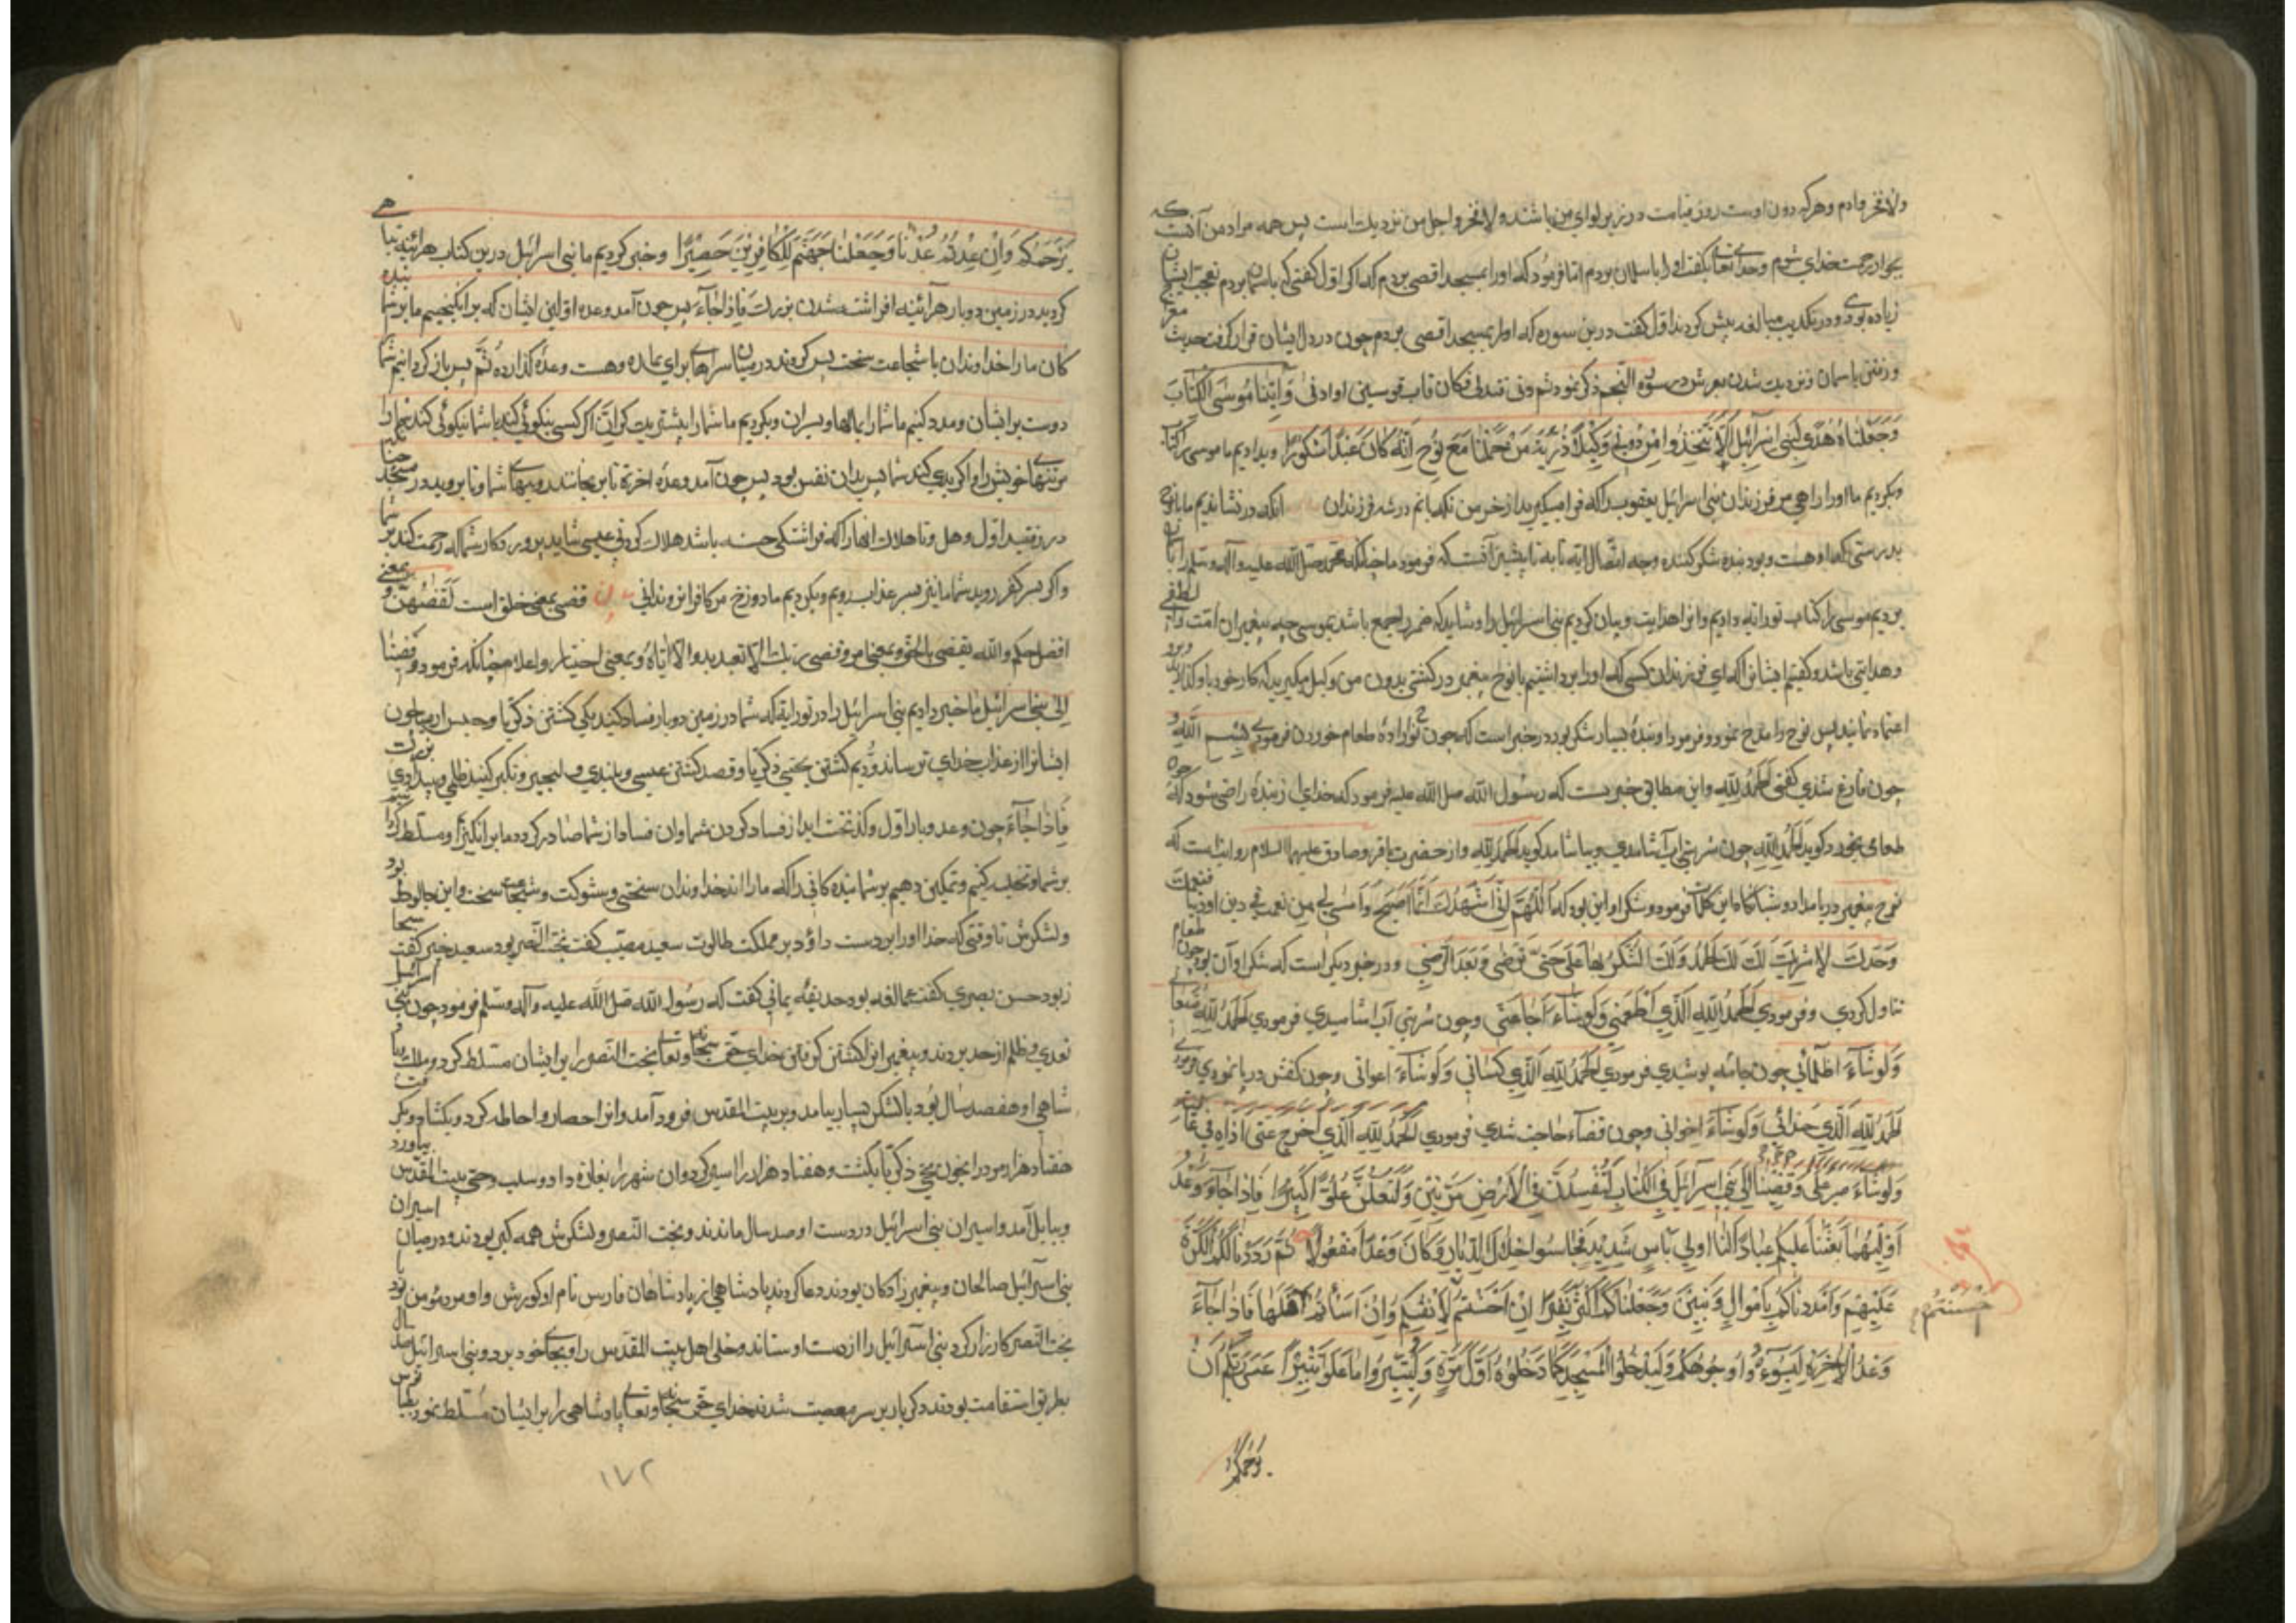 ولا فخر وادم وهرکه دون اوست روز قیامت در زیر لوای من باشند ولا فخر واجل من نزدیک است پس همه مراد من آنست که
بجوار رحمت خدای شوم وخدای تعالی بگفت او را باسمان بردم اما فرمود که او را بمسجد اقصی بردم که اکر اول کفتی که باسمان بردم تعجب ایشان
زیاده بودی ودر تکذیب مبالغه بیش کردند اول کفت درین سوره که او را بمسجد اقصی بردم چون در دل ایشان قرار کرفت حدیث معراج
ورفتن باسمان ونزدیک شدن بعرش در سورة النجم ذکر نمود ثم دنی فتدلی فکان قاب قوسین او ادنی وَآتَیْنَا مُوسَی الْکِتَابَ
وَجَعَلْنَاهُ هُدًی لِبَنِی اِسْرَآئِیلَ اَلَّا تَتَّخِذُوا مِنْ دُونِی وَکِیلًا ذُرِّیَّةَ مَنْ حَمَلْنَا مَعَ نُوحٍ اِنَّهُ کَانَ عَبْدًا شَکُورًا وبدادیم ما موسی را کتاب
وبکردیم ما او را راهی مر فرزندان بنی اسرائیل یعقوب را که فرا میکیرید از جز من نکهبانم در شه فرزندان انکه در نشاندیم ما با نوح
بدرستی که او هست وبود بنده شکر کننده وجه اتصال ایه تا به تا پیشین آنست که فرمود ما چنانکه محمد صلی الله علیه وآله وسلم را
بردیم موسی را کتاب توراته دادیم وانرا هدایت وبیان کردیم بنی اسرائیل را وشاید که ضمیر راجع باشد بموسی چه پیغمبر ان امت را لطفی
وهدایتی باشد وکفتیم ایشانرا که ای فرزندان کسی که او را برداشتیم با نوح پیغمبر در کشتی بدون من وکیل مکیرید که کار خود باو کذارید وبرو
اعتماد نمایید پس نوح را مدح نمود وفرمود او بندهٔ بسیار شکر بود در خبر است که چون نوح ارادهٔ طعام خوردن فرمودی بِسْمِ اللَّهِ و
چون فارغ شدی کفتی الْحَمْدُ لِلَّهِ واین مطابق خبریست که رسول الله صلی الله علیه فرمود که خدای از بندهٔ راضی شود که چون
طعامی بخورد کوید الْحَمْدُ لِلَّهِ چون شربتی آب آشامیدی وبیاشامد کوید الْحَمْدُ لِلَّهِ واز حضرت باقر وصادق علیهما السلام روایتست که
نوح پیغمبر در بامداد وشبانکاه این کلمات فرمود وشکر او این بود که اللَّهُمَّ اِنِّی اُشْهِدُکَ اَنَّ مَا اَصْبَحَ وَاَمْسَی بِی مِنْ نِعْمَةٍ فِی دین او دنیا فمنک
وَحْدَکَ لَا شَرِیکَ لَکَ لَکَ الْحَمْدُ وَلَکَ الشُّکْرُ بِهَا عَلَیَّ حَتَّی تَرْضَی وَبَعْدَ الرِّضَی ودر خبر دیکر است که شکر او آن بود چون طعام
تناول کردی وفرمودی الْحَمْدُ لِلَّهِ الَّذِی اَطْعَمَنِی وَلَوْ شَاءَ اَجَاعَنِی وچون شربتی آب اشامیدی فرمودی الْحَمْدُ لِلَّهِ
وَلَوْ شَآءَ اَظْمَأَنِی چون جامه پوشیدی فرمودی الْحَمْدُ لِلَّهِ الَّذِی کَسَانِی وَلَوْ شَآءَ اعرانی وچون کفش در پا نمودی فرمودی
الْحَمْدُ لِلَّهِ الَّذِی حَذَانِی وَلَوْ شَآءَ اَحْفَانِی وچون قضآء حاجت شدی فرمودی الْحَمْدُ لِلَّهِ الَّذِی اَخْرَجَ عَنِّی اَذَاهُ فِی عَافِیَةٍ
وَلَوْ شَآءَ وَقَضَیْنَا اِلَی بَنِی اِسْرَآئِیلَ فِی الْکِتَابِ لَتُفْسِدُنَّ فِی الْاَرْضِ مَرَّتَیْنِ وَلَتَعْلُنَّ عُلُوًّا کَبِیرًا فَاِذَا جَآءَ وَعْدُ
اُولَیهُمَا بَعَثْنَا عَلَیْکُمْ عِبَادًا لَنَا اُولِی بَأْسٍ شَدِیدٍ فَجَاسُوا خِلَالَ الدِّیَارِ وَکَانَ وَعْدًا مَفْعُولًا ثُمَّ رَدَدْنَا لَکُمُ الْکَرَّةَ
عَلَیْهِمْ وَاَمْدَدْنَاکُمْ بِاَمْوَالٍ وَبَنِینَ وَجَعَلْنَاکُمْ اَکْثَرَ نَفِیرًا اِنْ اَحْسَنْتُمْ لِاَنْفُسِکُمْ وَاِنْ اَسَأْتُمْ فَلَهَا فَاِذَا جَآءَ
احسنتم
وَعْدُ الْآخِرَةِ لِیَسُوءُوا وُجُوهَکُمْ وَلِیَدْخُلُوا الْمَسْجِدَ کَمَا دَخَلُوهُ اَوَّلَ مَرَّةٍ وَلِیُتَبِّرُوا مَا عَلَوْا تَتْبِیرًا عَسَی رَبُّکُمْ اَنْ
یرحمکم
یَرْحَمَکُمْ وَاِنْ عُدْتُمْ عُدْنَا وَجَعَلْنَا جَهَنَّمَ لِلْکَافِرِینَ حَصِیرًا وخبر کردیم ما بنی اسرائیل درین کتاب هرآئینه تباهی
کردید در زمین دوبار هرآئینه افراشته شدن بزرک فَاِذَا جَآءَ پس چون آمد وعده اولین ایشان که برانکیختیم ما بر شما بنده
کان ما را خداوندان با شجاعت سخت پس کردند در میان سراها برای بماده وهست وعدهٔ کذارده ثُمَّ پس باز کردانیم شما
دوست بر ایشان ومدد کنیم ما شما را بمالها وپسران وبکردیم ما شما را بیشتر بیت کران اِنْ اکر کسی نیکوئی کند با شما نیکوئی کند
مر تنهای خویش را واکر بدی کند شما پس بدان نفس بود پس چون آمد وعدهٔ اخرة تا برنجانند رویهای شما وتا بروید در مسجد چنانکه
در رفتید اول وهل وتا هلاک انها را که فراشتکی جسته باشد هلاک کردنی عیسی شاید پرورد کار شما که رحمت کند بر شما
واکر بسر کفر روید شما ما نیز بسر عذاب رویم وبکردیم ما دوزخ مر کافرانرا زندانی قضی بمعنی خلق است لَقَضٰهُنَّ وبمعنی
افصل حکم والله یقضی بالحق وبمعنی امر وقضی ربک الا تعبدوا الا ایاه وبمعنی اخبار واعلام چنانکه فرمود وقضینا
الی بنی اسرائیل ما خبر دادیم بنی اسرائیل را در توراته که شما در زمین دوبار فساد کنید یکی کشتن ذکریا وحبس ارمیا چون
ایشانرا از عذاب خدای ترساند ودویم کشتن یحیی ذکریا وقصد کشتن عیسی وبلندی وتجبر وتکبر کنید ظلمی وبیدادی بزرک
فَاِذَا جَآءَ چون وعد وبار اول وکذشت ابد از فساد کردن شما وان فساد از شما صادر کردد ما برانکیزیم ومسلط کردانیم
بر شما وتخلیه کنیم وتمکین دهیم بر شما بنده کانی را که ما را اند خداوندان سختی وشوکت وشجاعت سخت واین جالوط بود
ولشکرش تا وقتی که خدا او را بر دست داؤد بر مملکت طالوت سعید مصیب کفت بخت النصر بود سعید جبیر کفت سنجا
ریود حسن بصری کفت عمالقه بود حذیفه یمانی کفت که رسول الله صلی الله علیه وآله وسلم فرمود چون بنی اسرائیل
تعدی وظلم از حد بردند وپیغمبرانرا کشتن کرفتن خدای حق سبحانه وتعالی بخت النصر را بر ایشان مسلط کرد وملک
شاهی او هفصد سال بود با لشکر بسیار بیامد وبر بیت المقدس فرود آمد وانرا حصار واحاطه کرد وبکشاد وبکرفت
هفتاد هزار مرد را بخون یحیی ذکریا بکشت وهفتاد هزار را اسیر کرد وان شهر را بغارة داد وسلب وحلی بیت المقدس بیاورد
وببابل آمد واسیران بنی اسرائیل در دست او صد سال ماندند وبخت النصر ولشکرش همه کبر بودند ودر میان اسیران
بنی اسرائیل صالحان وپیغمبر زادکان بودند دعا کردند پادشاهی از پادشاهان فارس نام او کورش واو مرد مؤمن بود با
بخت النصر کارزار کرد بنی اسرائیل را از دست او ستاند وحلی اهل بیت المقدس را وبجای خود برد وبنی اسرائیل صد سال
بطریق استقامت بودند دیکر بار بر سر معصیت شدند خدای حق سبحانه وتعالی پادشاهی را بر ایشان مسلط نمود
۱۷۲